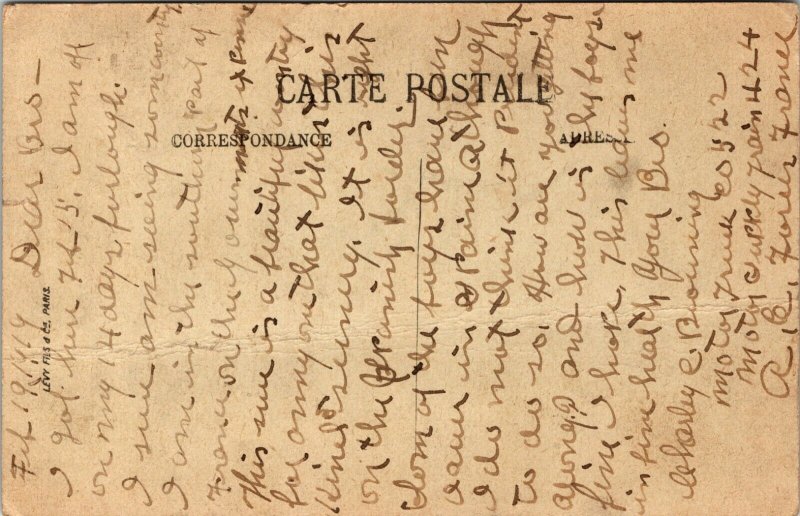 CARTE POSTALE
CORRESPONDANCE
ADRESSE
LÉVY FILS & Cie, PARIS.
Feb 19 1919 Dear Bro -
I got here Feb 15. I am off
on my 14 days furlough.
I sure am seeing some country
I am in the southern part of
France on the governments expense
This sure is a beautiful country
for anyone that likes this
kind scenery. It is right
on the Spanish border.
Som of the boys have been
over in Spain although
I do not think it Prudent
to do so. How are you getting
along? and how is the boys
fine I hope. This leaves me
in fine health Your Bro.
Charley C Browning
Motor Truck Co 522
Motor Supply Train 424
A.P.O. France